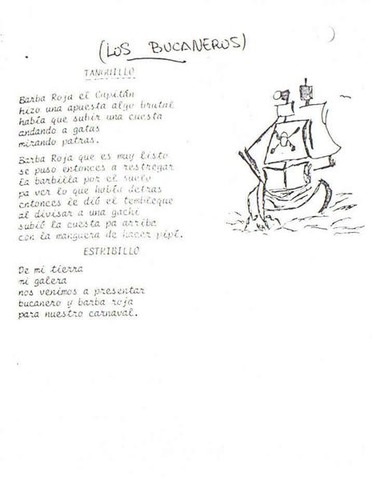 (LOS BUCANEROS)
TANGUILLO
Barba Roja el Capitán
hizo una apuesta algo brutal
había que subir una cuesta
andando a gatas
mirando patras.
Barba Roja que es muy listo
se puso entonces a restregar
la barbilla por el suelo
pa ver lo que había detras
entonces le dió el tembleque
al divisar a una gachí
subió la cuesta pa arriba
con la manguera de hacer pipí.
ESTRIBILLO
De mi tierra
mi galera
nos venimos a presentar
bucanero y barba roja
para nuestro carnaval.